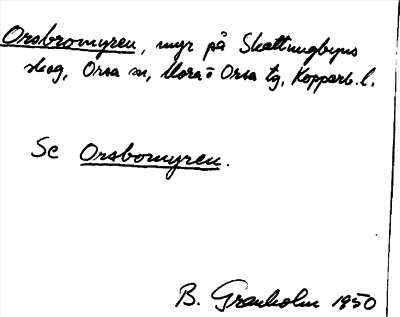 Orsbromyren, myr på Skattungbyns
skog, Orsa sn, Mora o Orsa tg, Kopparb. l.
Se Orsbomyren.
B. Granholm 1950